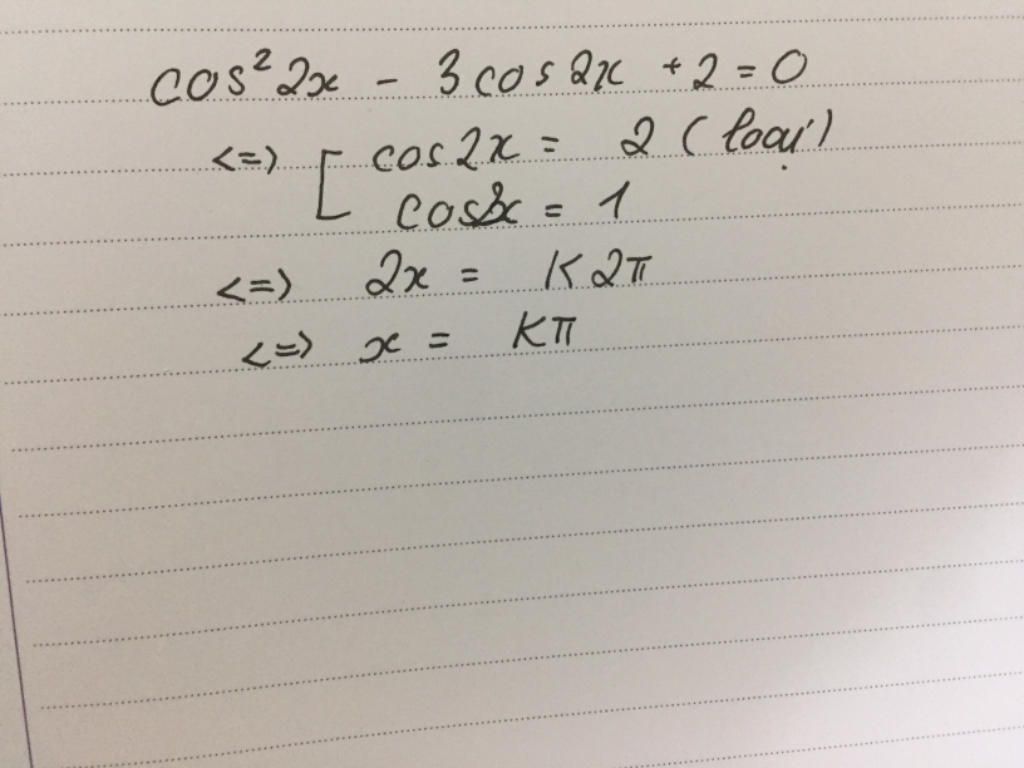 cos² 2x - 3 cos 2x + 2 = 0
<=> [ cos 2x = 2 (loại)
cos 2x = 1
<=> 2x = K2π
<=> x = Kπ